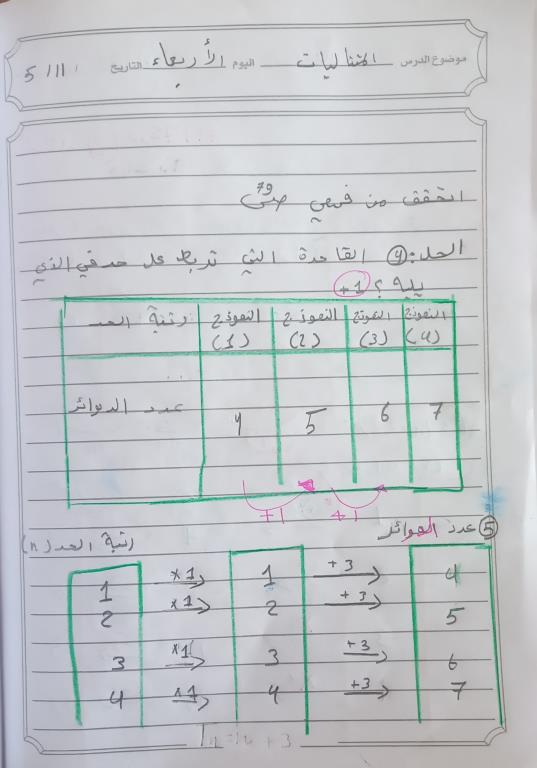 موضوع الدرس المتتاليات اليوم الأربعاء التاريخ 5/11/
اتحقق من فهمي ص79
الحل: (4) القاعدة التي تربط كل حد في الذي
يليه؟ +1
رتبة الحد النموذج (1) النموذج (2) النموذج (3) النموذج (4)
عدد الدوائر 4 5 6 7
+1 +1
(5) عدد الدوائر رتبة الحد (n)
1 ×1 → 1 +3 → 4
2 ×1 → 2 +3 → 5
3 ×1 → 3 +3 → 6
4 ×1 → 4 +3 → 7